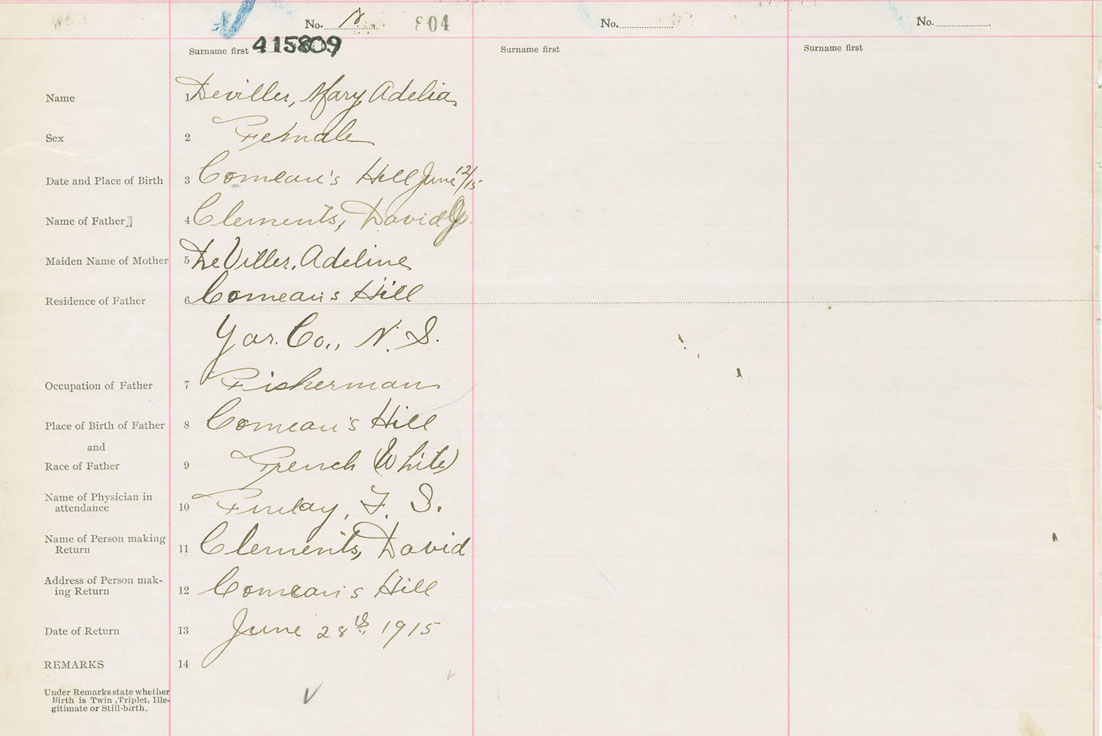 No. 804 No. No.
Surname first 415809 Surname first Surname first
Name 1 Deviller, Mary Adelia
Sex 2 Female
Date and Place of Birth 3 Comeau's Hill June 12/15
Name of Father 4 Clements, David J.
Maiden Name of Mother 5 DeViller, Adeline
Residence of Father 6 Comeau's Hill
Yar. Co., N. S.
Occupation of Father 7 Fisherman
Place of Birth of Father 8 Comeau's Hill
and
Race of Father 9 French (White)
Name of Physician in
attendance 10 Finlay, F. S.
Name of Person making
Return 11 Clements, David
Address of Person mak-
ing Return 12 Comeau's Hill
Date of Return 13 June 28th, 1915
REMARKS 14
Under Remarks state whether
Birth is Twin, Triplet, Ille-
gitimate or Still-birth.